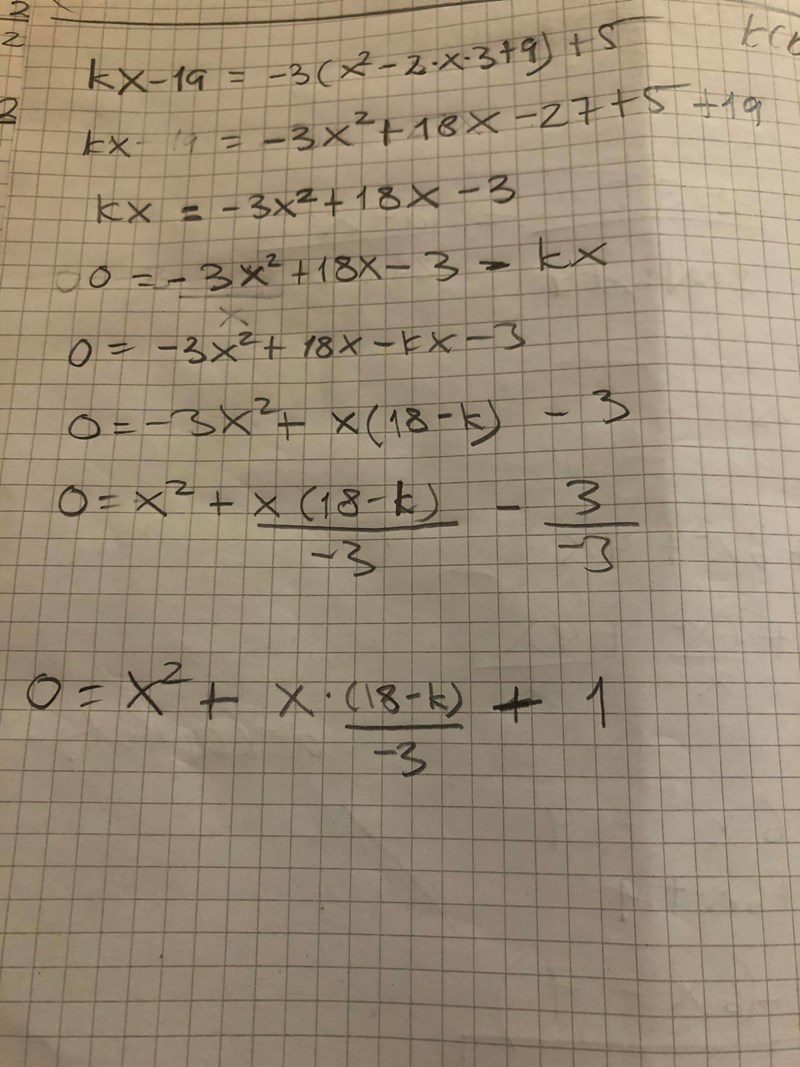 2
2
k(k
kx-19 = -3(x²-2·x·3+9)+5
2
kx = -3x²+18x-27+5+19
kx = -3x²+18x-3
0 = -3x²+18x-3-kx
0 = -3x²+18x-kx-3
0 = -3x²+ x(18-k) - 3
0 = x² + x(18-k)/-3 - 3/-3
0 = x² + x·(18-k)/-3 + 1